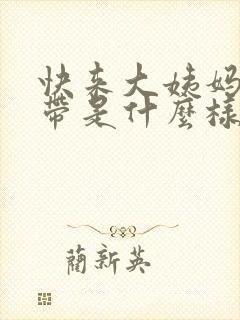 快来大姨妈
带是什麼樣
蘭新英